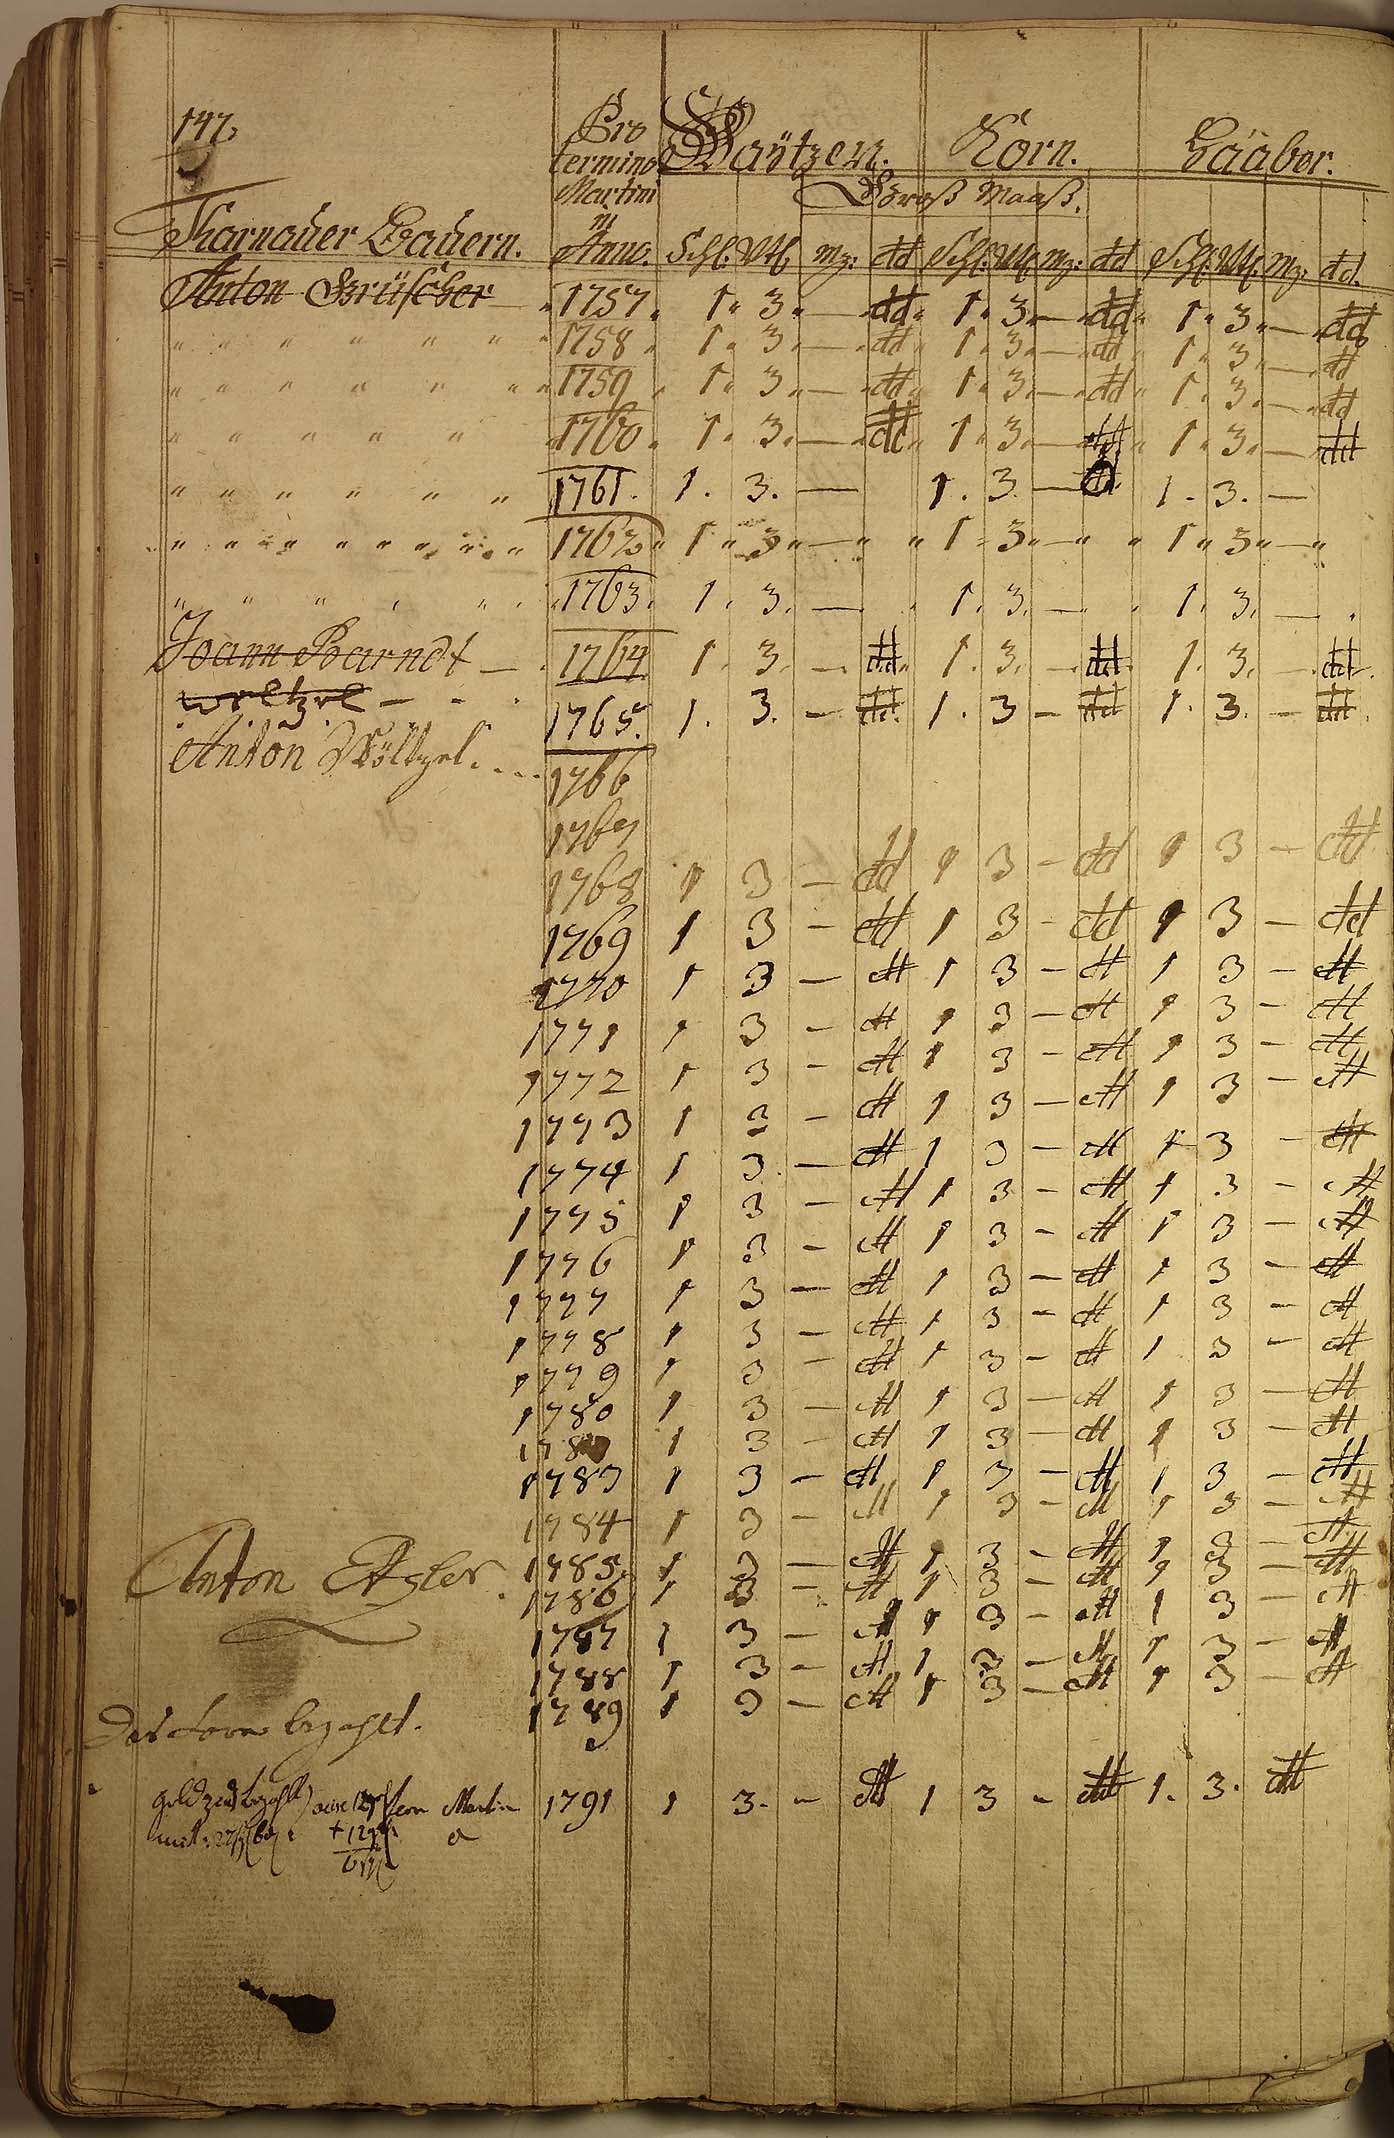 147.
Pro Waÿtzen. Korn. Haaber.
termino
Martini Groß Maaß.
in
Tharnauer Bauern. Anno. Schl: Vtl. mz: dd Schl: Vtl. mz: dd Schl: Vtl. mz: dd.
Anton Grüscher 1757. 1. 3. — dd 1. 3. — dd 1. 3. — dd
" " " " " " 1758. 1. 3. — dd 1. 3. — dd 1. 3. — dd
" " " " " " 1759. 1. 3. — dd 1. 3. — dd 1. 3. — dd
" " " " " 1760. 1. 3. — dd 1. 3. — dd 1. 3. — dd
" " " " " " 1761. 1. 3. — 1. 3. — 1. 3. —
" " " " " " " " 1762 " 1 " 3 " — " " 1 " 3 " — " " 1 " 3 " — "
" " " " " 1763. 1. 3. — 1. 3. — 1. 3. —
Joann Barndt — 1764 1. 3. — dd. 1. 3. — dd. 1. 3. — dd.
weltzel — 1765. 1. 3. — dd. 1. 3 — dd 1. 3. — dd.
Anton Wöltzel. 1766
1767
1768 1 3 — dd 1 3 — dd 1 3 — dd
1769 1 3 — dd 1 3 — dd 1 3 — dd
1770 1 3 — dd 1 3 — dd 1 3 — dd
1771 1 3 — dd 1 3 — dd 1 3 — dd
1772 1 3 — dd 1 3 — dd 1 3 — dd
1773 1 3 — dd 1 3 — dd 1 3 — dd
1774 1 3 — dd 1 3 — dd 1 3 — dd
1775 1 3 — dd 1 3 — dd 1 3 — dd
1776 1 3 — dd 1 3 — dd 1 3 — dd
1777 1 3 — dd 1 3 — dd 1 3 — dd
1778 1 3 — dd 1 3 — dd 1 3 — dd
1779 1 3 — dd 1 3 — dd 1 3 — dd
1780 1 3 — dd 1 3 — dd 1 3 — dd
178 1 3 — dd 1 3 — dd 1 3 — dd
1783 1 3 — dd 1 3 — dd 1 3 — dd
1784 1 3 — dd 1 3 — dd 1 3 — dd
Anton 1785. 1 3 — dd 1 3 — dd 1 3 — dd
1786 1 3 — dd 1 3 — dd 1 3 — dd
1787 1 3 — dd 1 3 — dd 1 3 — dd
1788 1 3 — dd 1 3 — dd 1 3 — dd
1789 1 3 — dd 1 3 — dd 1 3 — dd
bezahlt.
Martin 1791 1 3. — dd 1 3 — dd 1. 3. dd